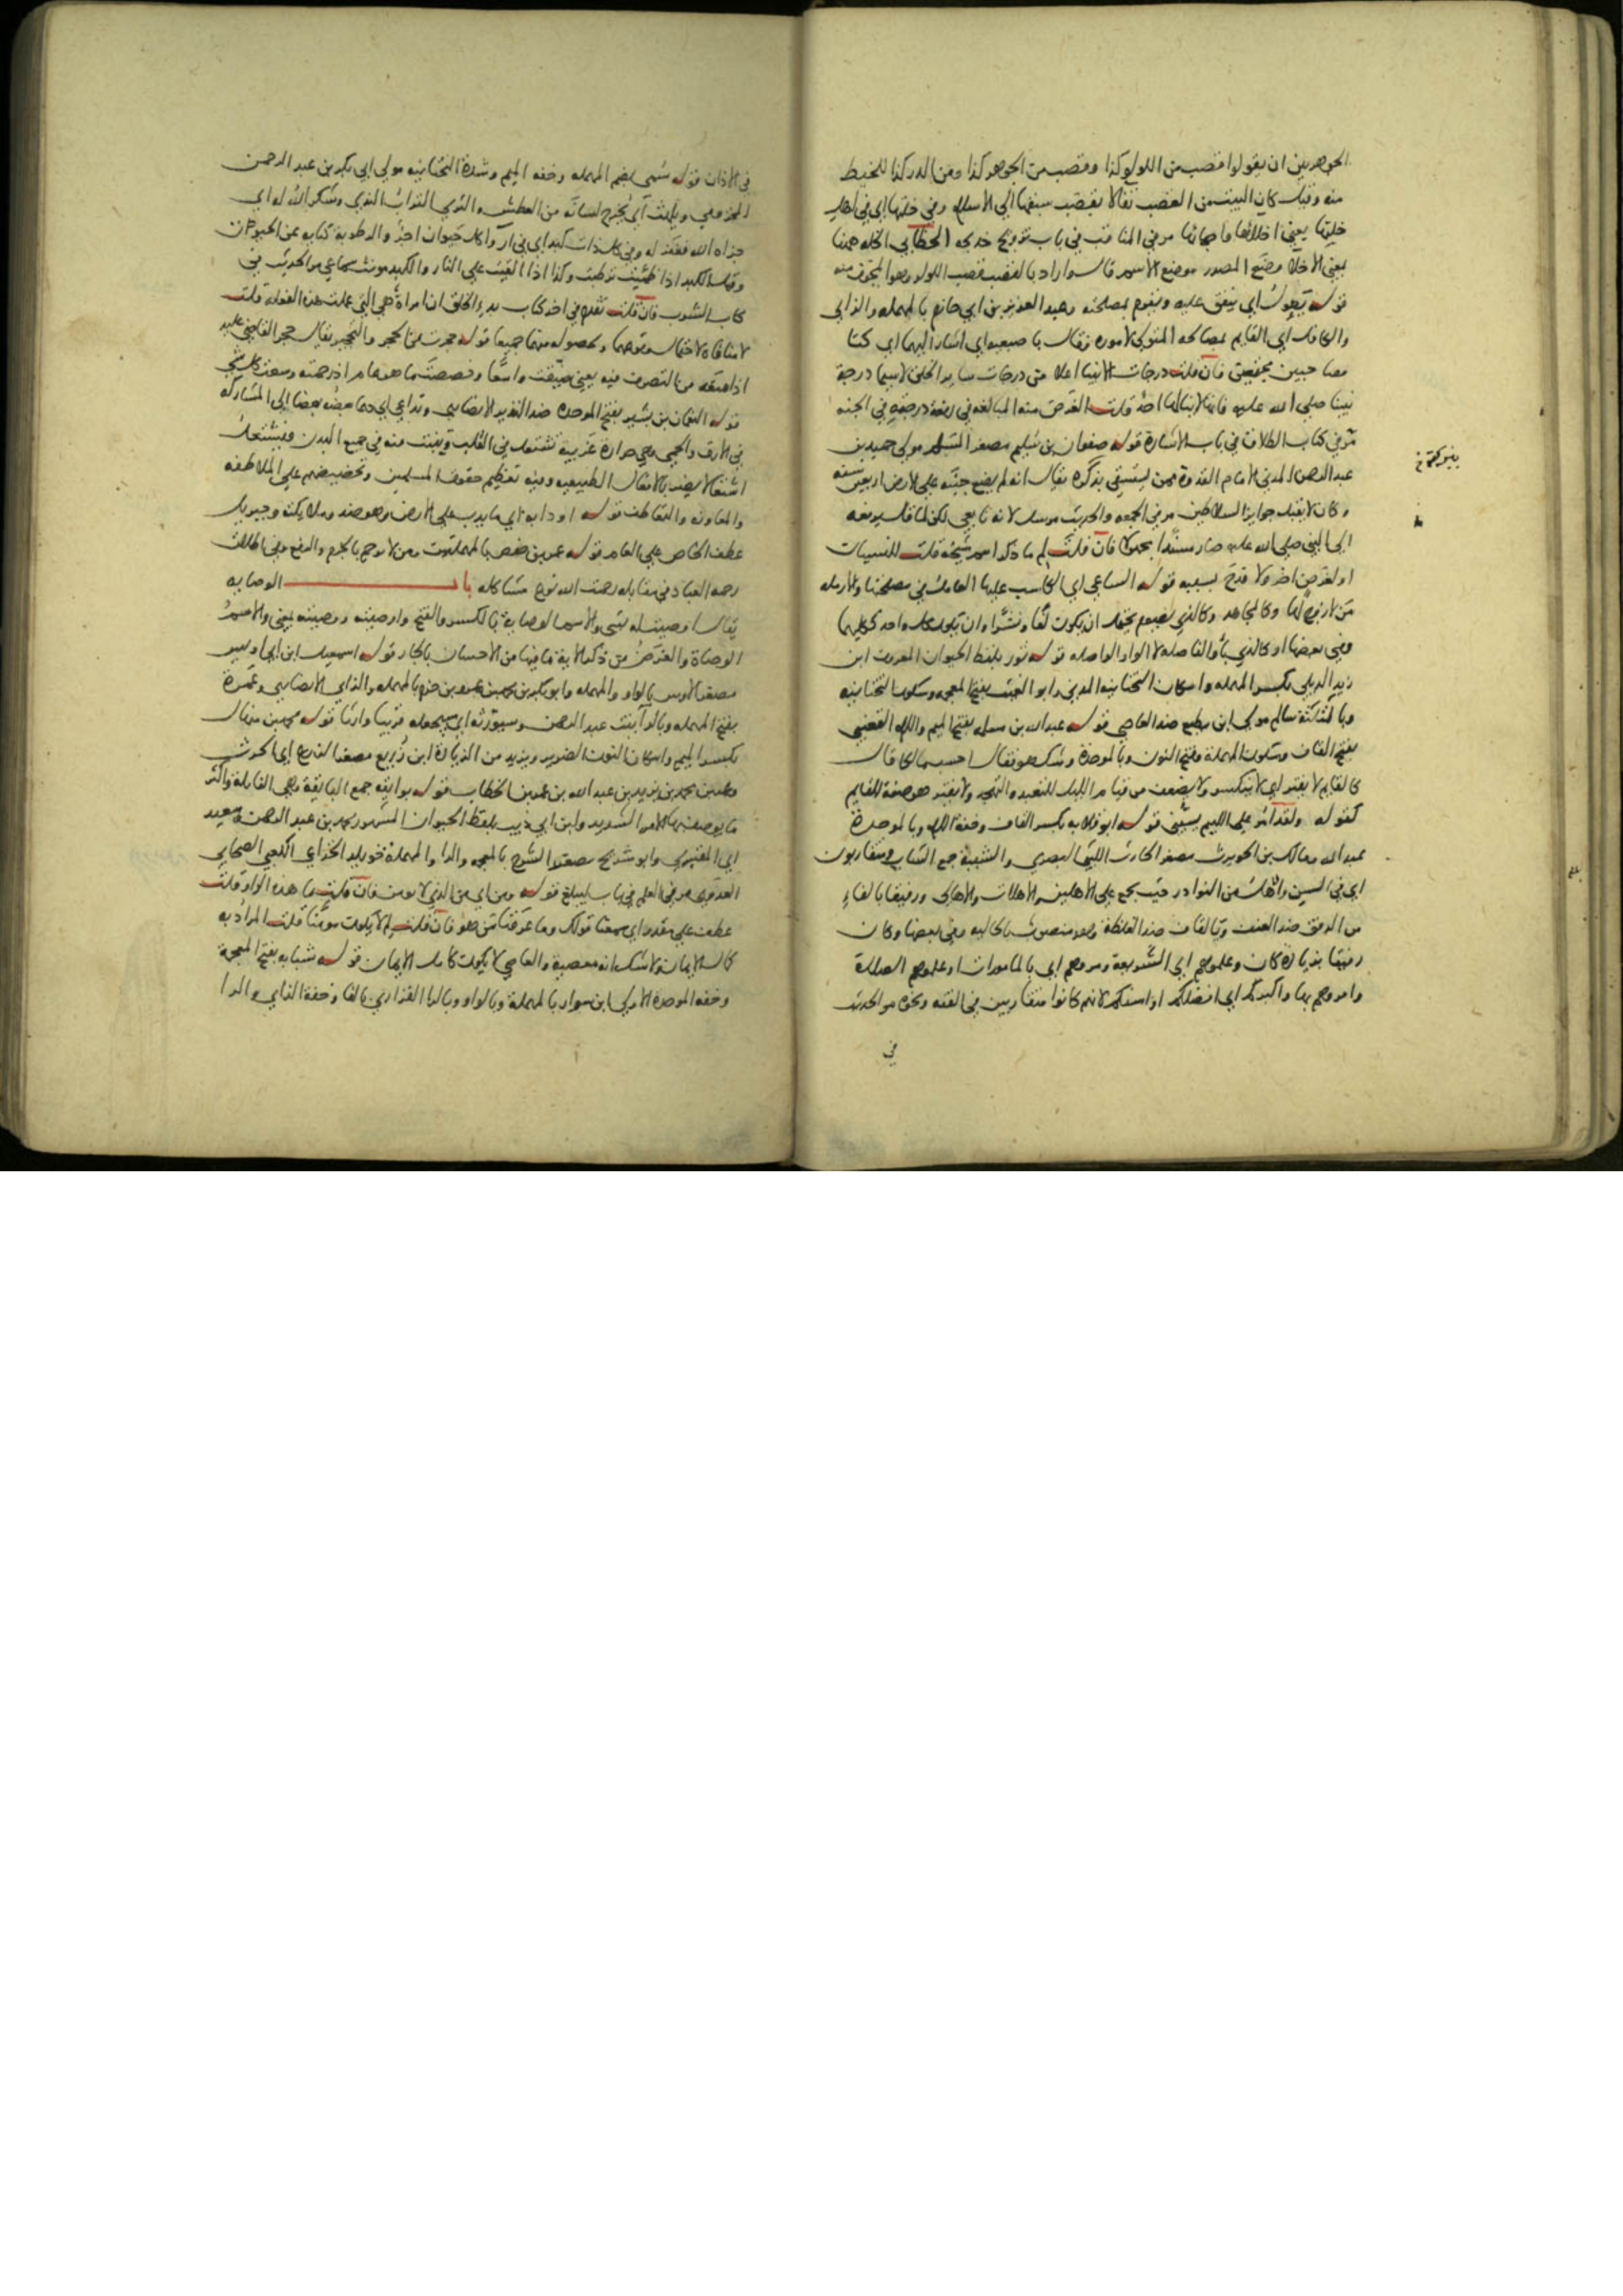 الجوهريين ان يقولوا قصب من اللولو كذا وقصب من الجوهر كذا ومن الدر كذا للخيط
منه وقيل كان البيت من القصب تفالا بقصب سبقها الي الاسلام وفي خلتها اي في اهل
خلتها يعني اخلائها واصحابها مر في المناقب في باب تزويج خديجه الخطابي الخله ههنا
بمعني الاخلا وضع المصدر موضع الاسم قال واراد بالقصب قصب اللولو وهو المجوف منه
قوله يعول اي ينفق عليه ويقوم بمصلحته وعبد العزيز بن ابي حازم بالمهمله والزاي
والكافل اي القايم بمصالحه المتولي لاموره وقال باصبعيه اي اشار اليهما اي كنا
مصاحبين مجتمعين فان قلت درجات الانبيا اعلا من درجات ساير الخلق لاسيما درجة
نبينا صلي الله عليه فانها لاينالها احد قلت الغرض منه المبالغه في رفعة درجته في الجنه
مر في كتاب الطلاق في باب الاشارة قوله صفوان بن سليم مصغر السلم مولي حميد بن
عبد الرحمن المدني الامام القدوة ممن يستسقي بذكره يقال انه لم يضع جنبه علي الارض اربعين سنه
وكان لايقبل جوايز السلاطين مر في الجمعه والحديث مرسل لانه تابعي لكن لما قال يرفعه
الي النبي صلي الله عليه صار مسندا مجهولا فان قلت لم ما ذكر اسم شيخه قلت للنسيان
او لغرض اخر ولا قدح بسببه قوله الساعي اي الكاسب عليها العامل في مصلحتها والارمله
من لازوج لها وكالمجاهد وكالذي يصوم يحتمل ان يكون لفا ونشرا وان يكون كل واحد ككليهما
وفي بعضها او كالذي باو الفاصله لا الواو الواصله قوله ثور بلفظ الحيوان المعروف ابن
زيد الديلي بكسر المهمله واسكان التحتانيه المدني وابو الغيث بفتح المعجمه وسكون التحتانيه
وبالمثلثة سالم مولي ابن مطيع ضد العاصي قوله عبد الله بن مسلمه بفتح الميم واللام القعنبي
بفتح القاف وسكون المهملة وفتح النون وبالموحدة وشك هو فقال احسب مالكا قال
كالقايم لا يفتر اي لا ينكسر ولا يضعف من قيام الليل للتعبد والتهجد ولايفتر هو صفة للقايم
كقوله ولقد امر علي اللييم يسبني قوله ابو قلابه بكسر القاف وخفة اللام وبالموحدة
عبد الله ومالك بن الحويرث مصغر الحارث الليثي البصري والشببة جمع الشاب ومتقاربون
اي في السن والاهل من النوادر حيث يجمع علي الاهلين والاهلات والاهالي ورفيقا بالفاء
من الرفق ضد العنف وبالقاف ضد الغلظة وهو منصوب بالحاليه وفي بعضها وكان
رفيقا بزيادة كان وعلموهم اي الشريعة ومروهم اي بالمامورات او علموهم الصلاة
وامروهم بها واكبركم اي افضلكم او اسنكم لانهم كانوا متقاربين في الفقه ونحوه مر الحديث
في
في الاذان قوله سمي بضم المهمله وخفه الميم وشدة التحتانيه مولي ابي بكر بن عبد الرحمن
المخزومي ويلهث اي يخرج لسانه من العطش والثري التراب الندي وشكر الله له اي
جزاه الله فغفر له وفي كل ذات كبد اي في ارواء كل حيوان اجر والرطوبة كنايه عن الحيوة
وقيل الكبد اذا ظميت ترطبت وكذا اذا القيت علي النار والكبد مونث سماعي مر الحديث في
كتاب الشرب فان قلت تقدم في اخر كتاب بدء الخلق ان امراة هي التي عملت هذه الفعلة قلت
لا منافاة لاحتمال وقوعهما وحصوله منهما جميعا قوله حجرت من الحجر والتحجير يقال حجر القاضي عليه
اذا منعه من التصرف فيه يعني ضيقت واسعا وخصصت ما هو عام اذ رحمته وسعت كل شي
قوله النعمان بن بشير بفتح الموحده ضد النذير الانصاري وتداعي اي دعا بعضه بعضا الي المشاركه
في الارق والحمي وهي حرارة غريبة تشتعل في القلب وتنبث منه في جميع البدن فيشتعل
اشتعالا يضر بالافعال الطبيعيه وفيه تعظيم حقوق المسلمين وتحضيضهم علي الملاطفه
والمعاونه والتعاطف قوله او دابه اي ما يدب علي الارض وهو ضد وملايكته وجبريل
عطف الخاص علي العام قوله عمر بن حفص بالمهملتين ومن لا يرحم بالجزم والرفع وفي اطلاق
رحمه العباد في مقابله رحمت الله نوع مشاكله باب الوصايه
يقال اوصيت له بشي والاسم الوصاية بالكسر والفتح واوصيته ووصيته بمعني والاسم
الوصاة والغرض من ذكر الاية ما فيها من الاحسان بالجار قوله اسمعيل ابن ابي اويس
مصغر الاوس بالواو والمهمله وابو بكر بن محمد بن عمرو بن حزم بالمهمله والزاي الانصاري وعمرة
بفتح المهمله وبالرا بنت عبد الرحمن وسيورثه اي سيجعله قريبا وارثا قوله محمد بن منهال
بكسر الميم واسكان النون الضرير ويزيد من الزيادة ابن زريع مصغر الزرع اي الحرث
وعمر بن محمد بن زيد بن عبد الله بن عمر بن الخطاب قوله بوايقه جمع البايقة وهي الغايلة والشر
ما يوصف بها الامر الشديد وابن ابي ذيب بلفظ الحيوان المشهور محمد بن عبد الرحمن وسعيد
اي المقبري وابو شريح مصغر الشرح بالمعجمه والرا والمهملة خويلد الخزاعي الكعبي الصحابي
العدوي مر في العلم في باب ليبلغ قوله ومن اي من الذي لا يومن فان قلت ما هذه الواو قلت
عطف علي مقدر اي سمعنا قولك وما عرفنا من هو فان قلت لم لا يكون مومنا قلت المراد به
كمال الايمان ولا شك انه معصية والعاصي لا يكون كامل الايمان قوله شبابه بفتح المعجمة
وخفه الموحدة الاولي ابن سوار بالمهملة وبالواو وبالرا الفزاري بالفا وخفة الزاي والرا